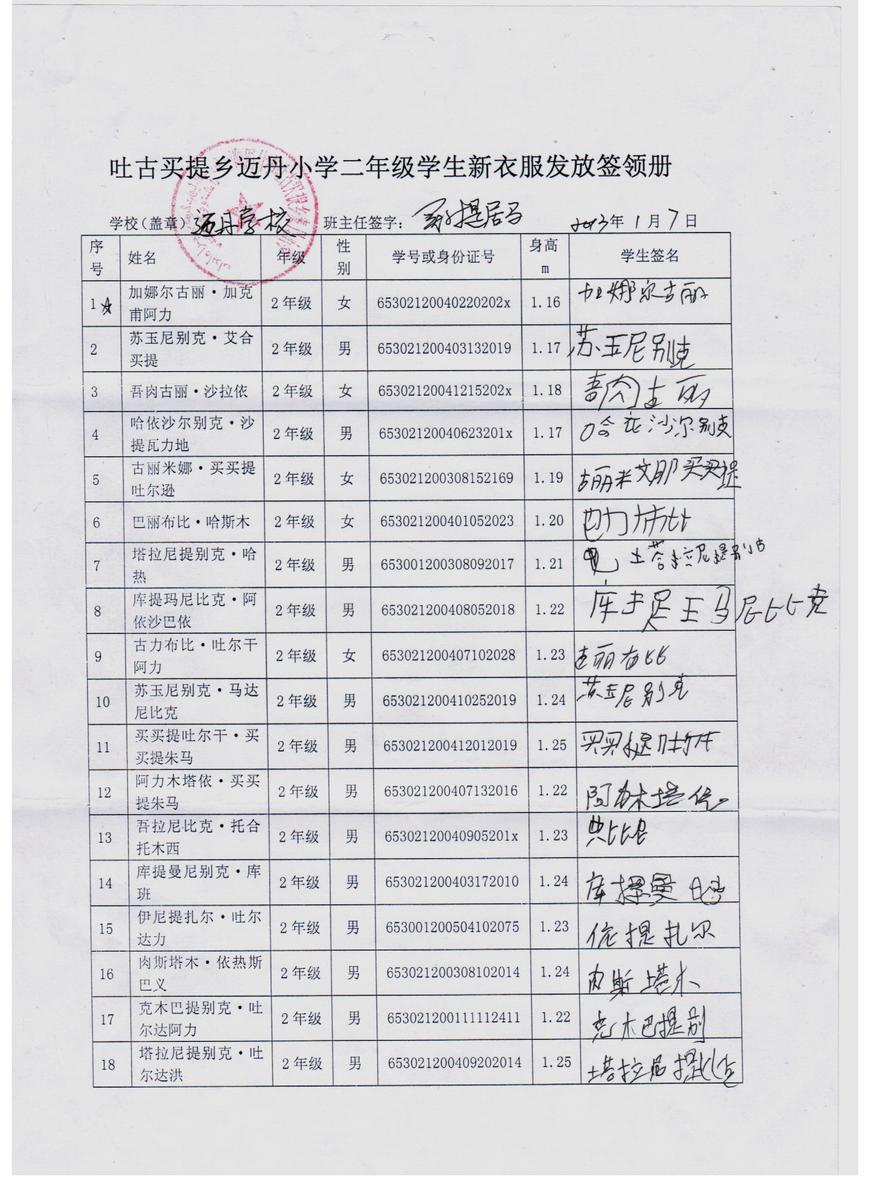 吐古买提乡迈丹小学二年级学生新衣服发放签领册
学校(盖章) 迈丹学校 班主任签字: 2013年 1月 7日
序号 姓名 年级 性别 学号或身份证号 身高m 学生签名
1 加娜尔古丽·加克甫阿力 2年级 女 65302120040220202x 1.16 加娜尔古丽
2 苏玉尼别克·艾合买提 2年级 男 653021200403132019 1.17 苏玉尼别克
3 吾肉古丽·沙拉依 2年级 女 65302120041215202x 1.18
4 哈依沙尔别克·沙提瓦力地 2年级 男 65302120040623201x 1.17 哈衣沙尔别克
5 古丽米娜·买买提吐尔逊 2年级 女 653021200308152169 1.19
6 巴丽布比·哈斯木 2年级 女 653021200401052023 1.20
7 塔拉尼提别克·哈热 2年级 男 653001200308092017 1.21
8 库提玛尼比克·阿依沙巴依 2年级 男 653021200408052018 1.22
9 古力布比·吐尔干阿力 2年级 女 653021200407102028 1.23
10 苏玉尼别克·马达尼比克 2年级 男 653021200410252019 1.24 苏玉尼别克
11 买买提吐尔干·买买提朱马 2年级 男 653021200412012019 1.25
12 阿力木塔依·买买提朱马 2年级 男 653021200407132016 1.22
13 吾拉尼比克·托合托木西 2年级 男 65302120040905201x 1.23
14 库提曼尼别克·库班 2年级 男 653021200403172010 1.24 库提曼
15 伊尼提扎尔·吐尔达力 2年级 男 653001200504102075 1.23 依提扎尔
16 肉斯塔木·依热斯巴义 2年级 男 653021200308102014 1.24 肉斯塔木
17 克木巴提别克·吐尔达阿力 2年级 男 653021200111112411 1.22 克木巴提别
18 塔拉尼提别克·吐尔达洪 2年级 男 653021200409202014 1.25